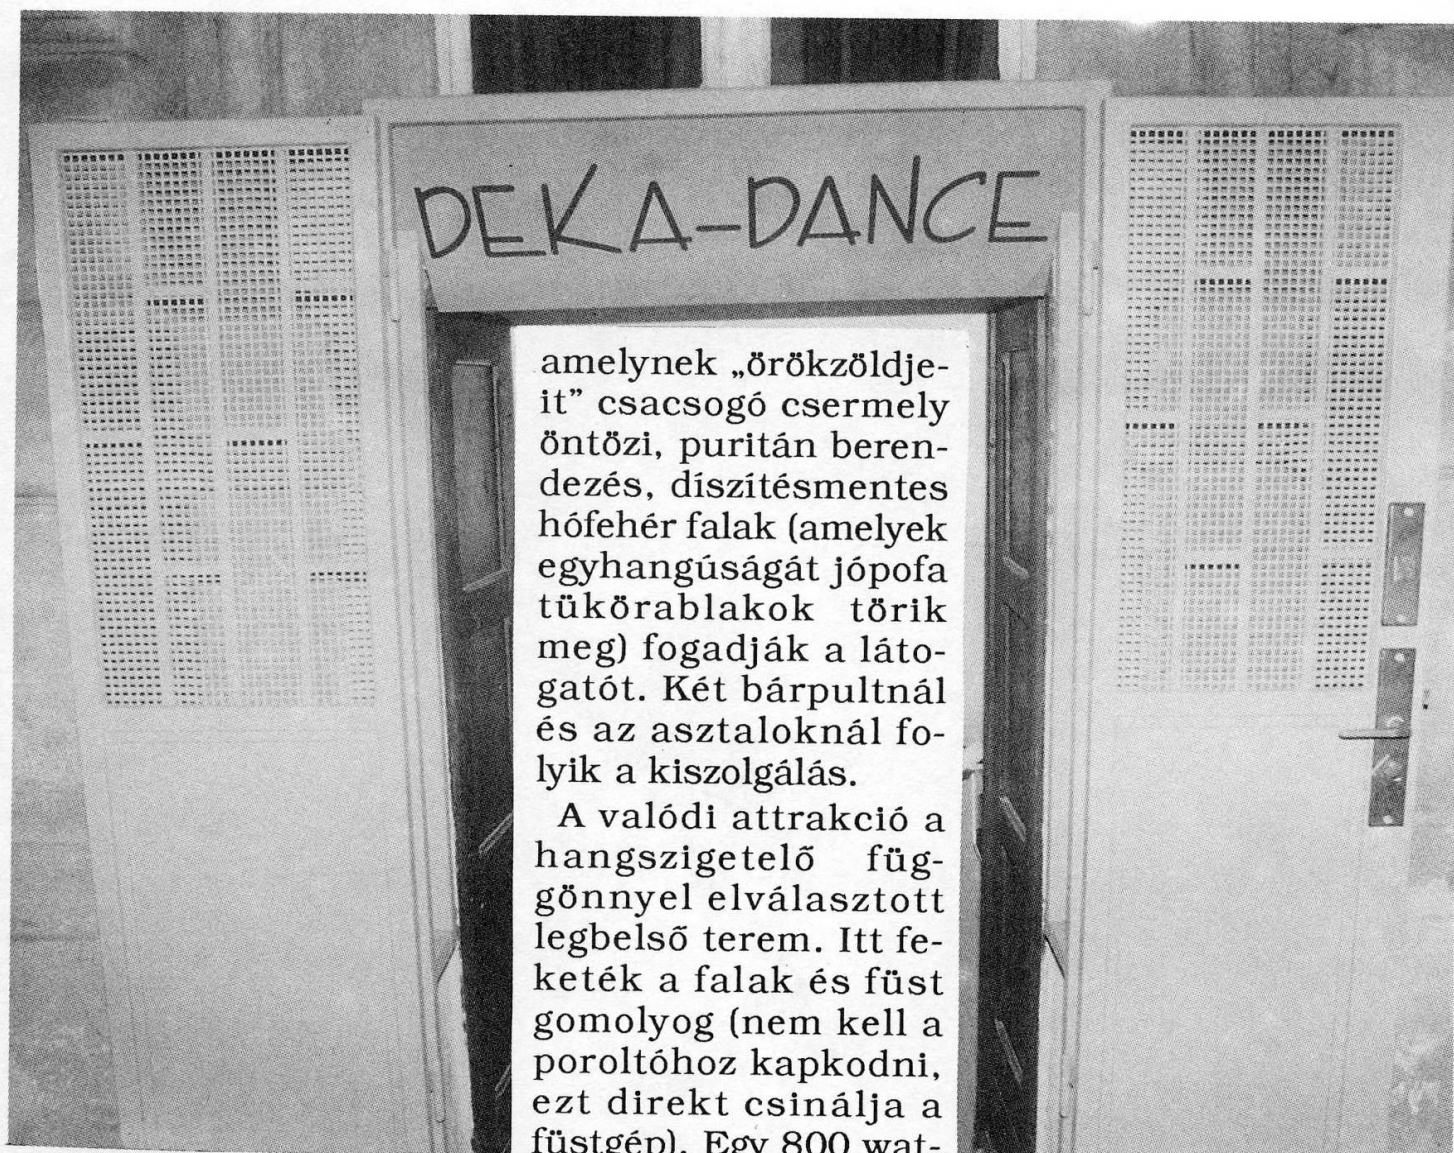 DEKA-DANCE
amelynek „örökzöldje-
it” csacsogó csermely
öntözi, puritán beren-
dezés, díszítésmentes
hófehér falak (amelyek
egyhangúságát jópofa
tükörablakok törik
meg) fogadják a láto-
gatót. Két bárpultnál
és az asztaloknál fo-
lyik a kiszolgálás.
A valódi attrakció a
hangszigetelő füg-
gönnyel elválasztott
legbelső terem. Itt fe-
keték a falak és füst
gomolyog (nem kell a
poroltóhoz kapkodni,
ezt direkt csinálja a
füstgép). Egy 800 wat-